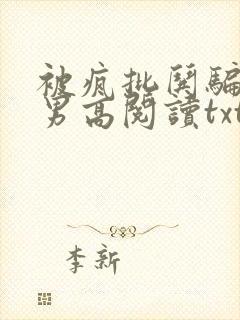 被疯批闋騙
男高閱讀txt
李新